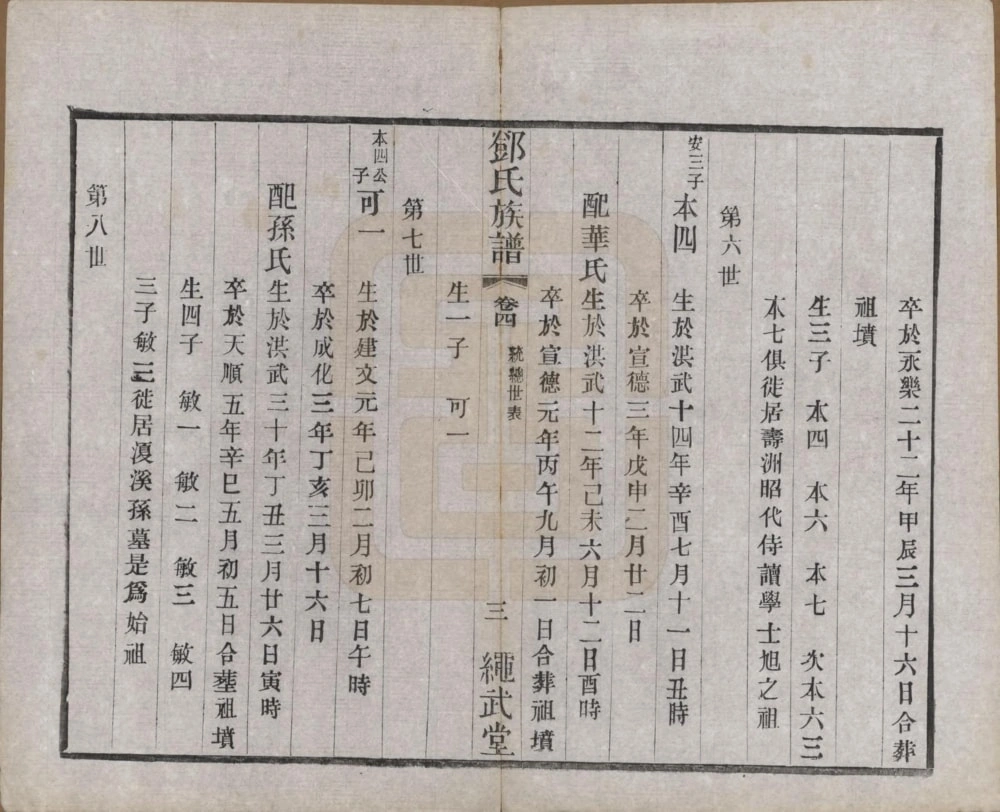 卒於永樂二十二年甲辰三月十六日合葬
祖墳
生三子 本四 本六 本七 次本六三
本七俱徙居壽洲昭代侍讀學士旭之祖
第六世
安三子 本四 生於洪武十四年辛酉七月十一日丑時
卒於宣德三年戊申二月廿二日
配華氏生於洪武十二年己未六月十二日酉時
卒於宣德元年丙午九月初一日合葬祖墳
生一子 可一
鄧氏族譜 卷四 統總世表 三 繩武堂
第七世
本四公子 可一 生於建文元年己卯二月初七日午時
卒於成化三年丁亥三月十六日
配孫氏生於洪武三十年丁丑三月廿六日寅時
卒於天順五年辛巳五月初五日合塟祖墳
生四子 敏一 敏二 敏三 敏四
三子敏三徙居溭溪孫墓是爲始祖
第八世